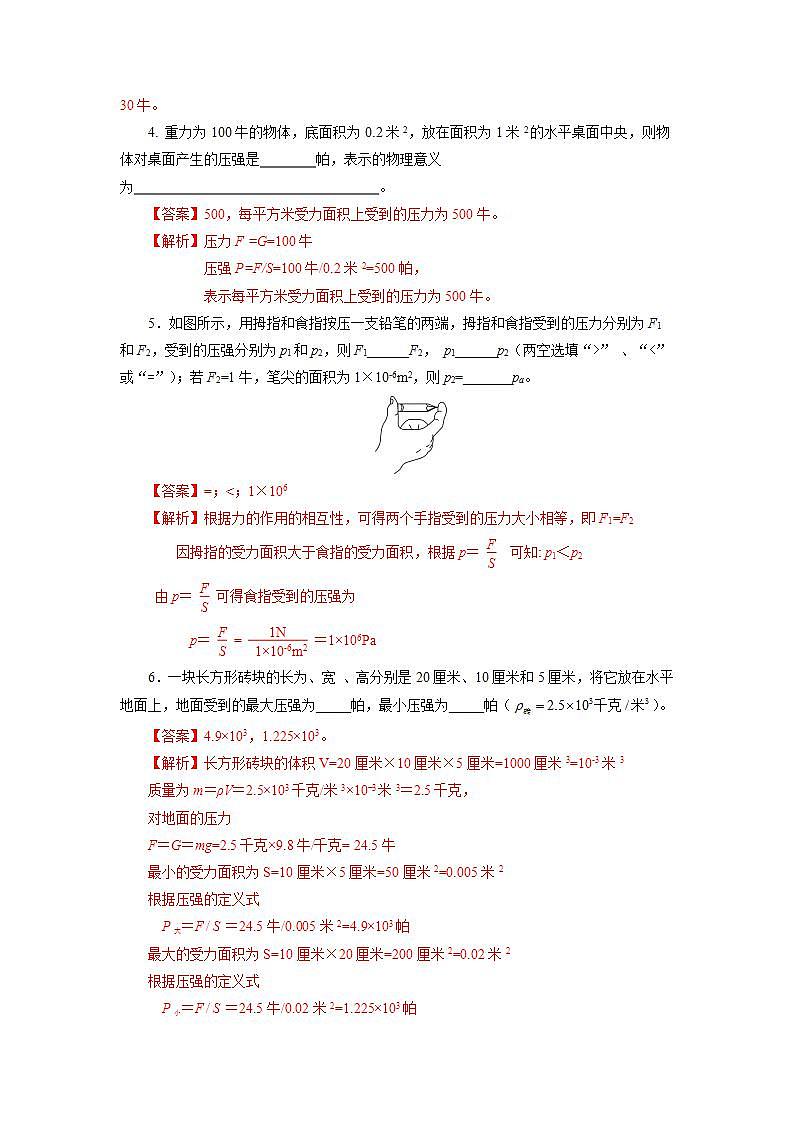 30牛。
4. 重力为100牛的物体，底面积为0.2米2，放在面积为1米2的水平桌面中央，则物
体对桌面产生的压强是________帕，表示的物理意义
为___________________________________。
【答案】500，每平方米受力面积上受到的压力为500牛。
【解析】压力F =G=100牛
压强P=F/S=100牛/0.2米2=500帕，
表示每平方米受力面积上受到的压力为500牛。
5．如图所示，用拇指和食指按压一支铅笔的两端，拇指和食指受到的压力分别为F1
和F2，受到的压强分别为p1和p2，则F1______F2， p1______p2（两空选填“>” 、“<”
或“=”）；若F2=1牛，笔尖的面积为1×10-6m2，则p2=_______pa。
【答案】=；<；1×106
【解析】根据力的作用的相互性，可得两个手指受到的压力大小相等，即F1=F2
因拇指的受力面积大于食指的受力面积，根据p＝F/S 可知: p1＜p2
由p＝F/S可得食指受到的压强为
p＝F/S＝1N/1×10-6m2＝1×106Pa
6．一块长方形砖块的长为、宽 、高分别是20厘米、10厘米和5厘米，将它放在水平
地面上，地面受到的最大压强为_____帕，最小压强为_____帕（ρ砖＝2.5×103千克/米3）。
【答案】4.9×103，1.225×103。
【解析】长方形砖块的体积V=20厘米×10厘米×5厘米=1000厘米3=10-3米3
质量为m＝ρV＝2.5×103千克/米3×10−3米3＝2.5千克，
对地面的压力
F＝G＝mg=2.5千克×9.8牛/千克= 24.5牛
最小的受力面积为S=10厘米×5厘米=50厘米2=0.005米2
根据压强的定义式
P大＝F / S ＝24.5牛/0.005米2=4.9×103帕
最大的受力面积为S=10厘米×20厘米=200厘米2=0.02米2
根据压强的定义式
P小＝F / S ＝24.5牛/0.02米2=1.225×103帕